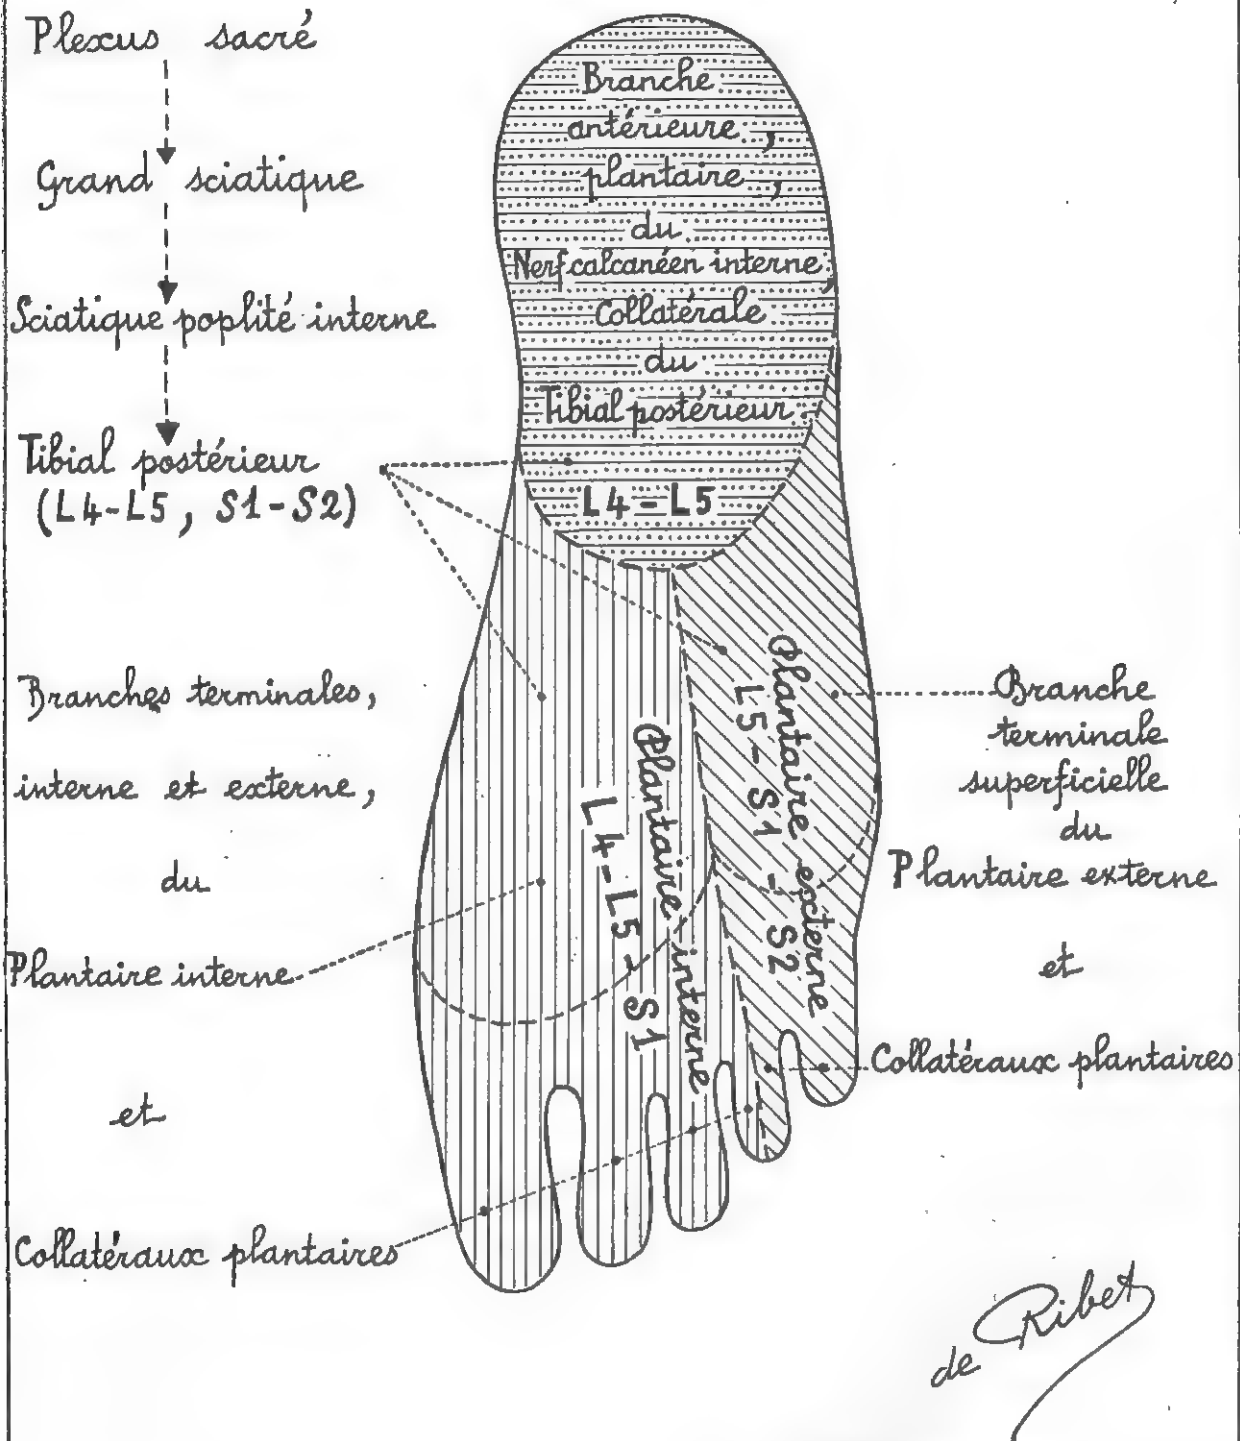 Plexus sacré
Grand sciatique
Sciatique poplité interne
Tibial postérieur
(L4-L5, S1-S2)
Branches terminales,
interne et externe,
du
Plantaire interne
et
Collatéraux plantaires
Branche
antérieure,
plantaire,
du
Nerf calcanéen interne,
Collatérale
du
Tibial postérieur
L4-L5
Plantaire interne
L4-L5-S1
Plantaire externe
L5-S1-S2
Branche
terminale
superficielle
du
Plantaire externe
et
Collatéraux plantaires
de Ribet